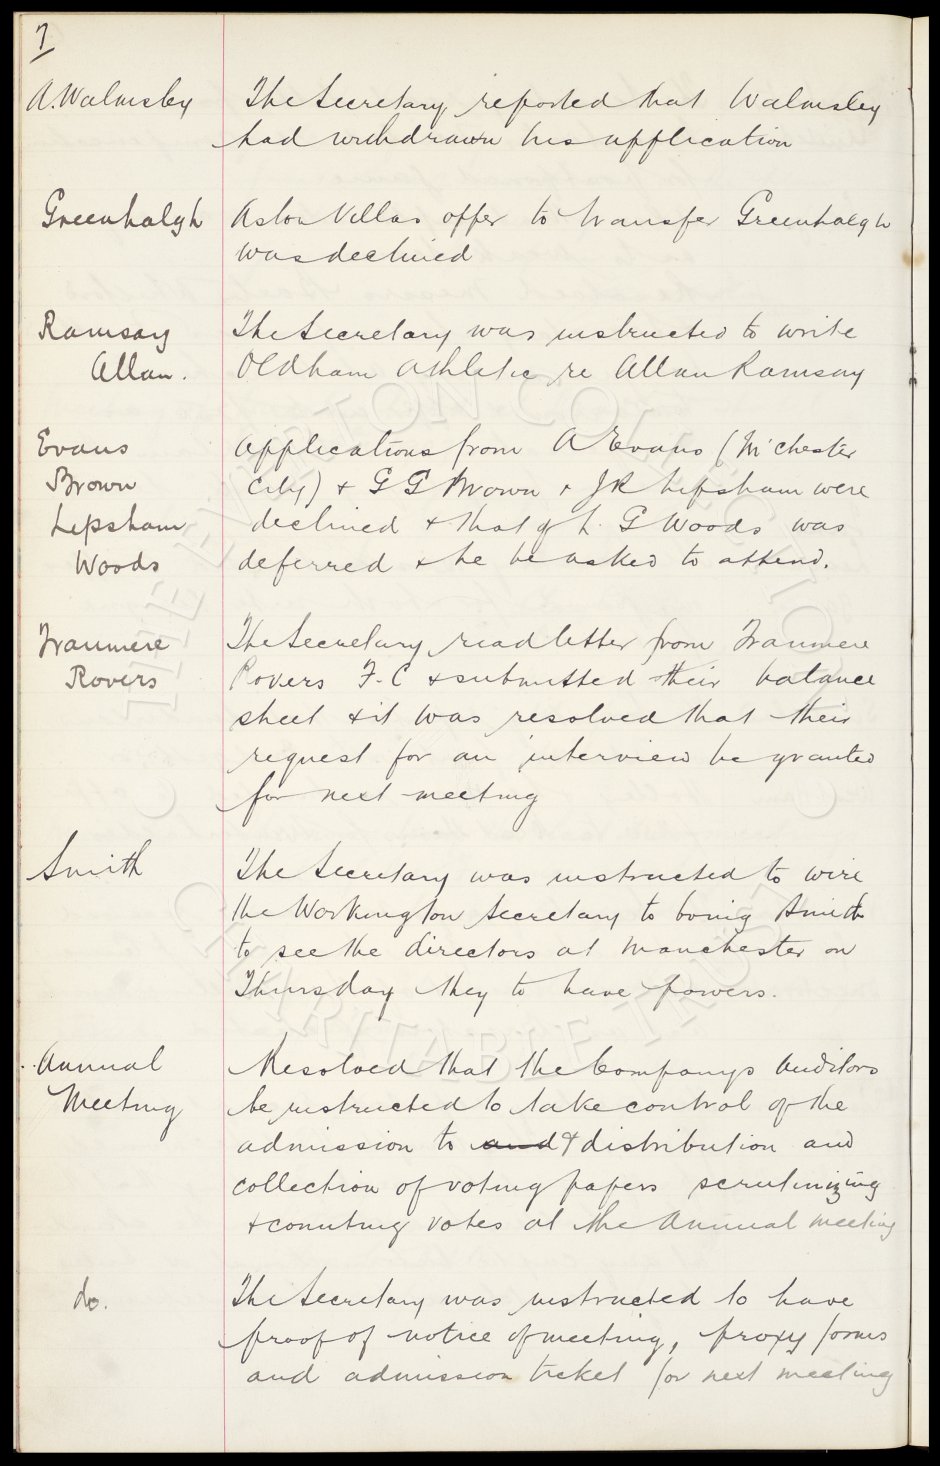 7
A. Walmsley
The Secretary reported that Walmsley
had withdrawn his application
Greenhalgh
Aston Villas offer to transfer Greenhalgh
was declined
Ramsay
Allan.
The Secretary was instructed to write
Oldham Athletic re Allan Ramsay
Evans
Brown
Lipsham
Woods
Applications from A Evans (M'chester
City) + G G Brown + J R Lipsham were
declined + that of h. G Woods was
deferred + he be asked to attend.
Tranmere
Rovers
The Secretary read letter from Tranmere
Rovers F.C + submitted their balance
sheet + it was resolved that their
request for an interview be granted
for next meeting
Smith
The Secretary was instructed to wire
the Workington Secretary to bring Smith
to see the directors at Manchester on
Thursday they to have powers.
Annual
Meeting
Resolved that the Companys Auditors
be instructed to take control of the
admission to and + distribution and
collection of voting papers scrutinizing
+ counting votes at the Annual meeting
do.
The Secretary was instructed to have
proof of notice of meeting, proxy forms
and admission ticket for next meeting